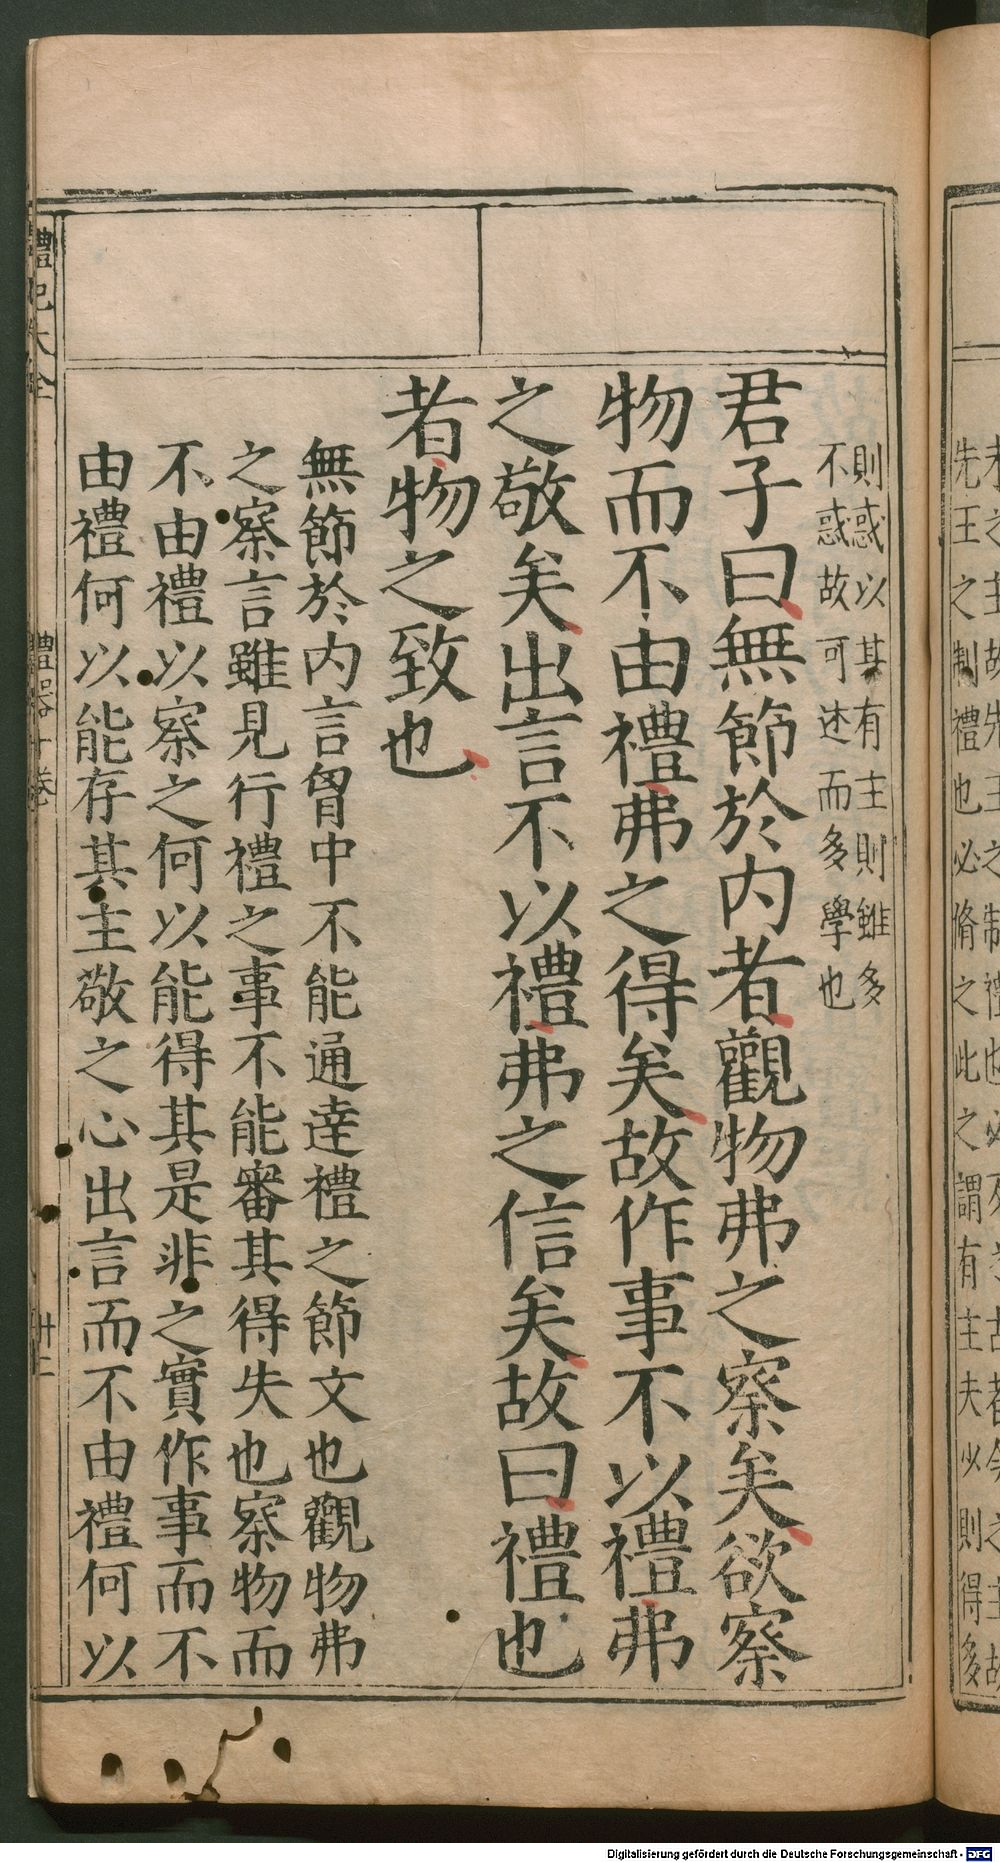 先王之制禮也必脩之此之謂有主夫
則惑以其有主則雖多
不惑故可述而多學也
君子曰無節於内者觀物弗之察矣欲察
物而不由禮弗之得矣故作事不以禮弗
之敬矣出言不以禮弗之信矣故曰禮也
者物之致也
無節於内言胷中不能通逹禮之節文也觀物弗
之察言雖見行禮之事不能審其得失也察物而
不由禮以察之何以能得其是非之實作事而不
由禮何以能存其主敬之心出言而不由禮何以
禮記大全
禮器十卷
Digitalisierung gefördert durch die Deutsche Forschungsgemeinschaft - DFG